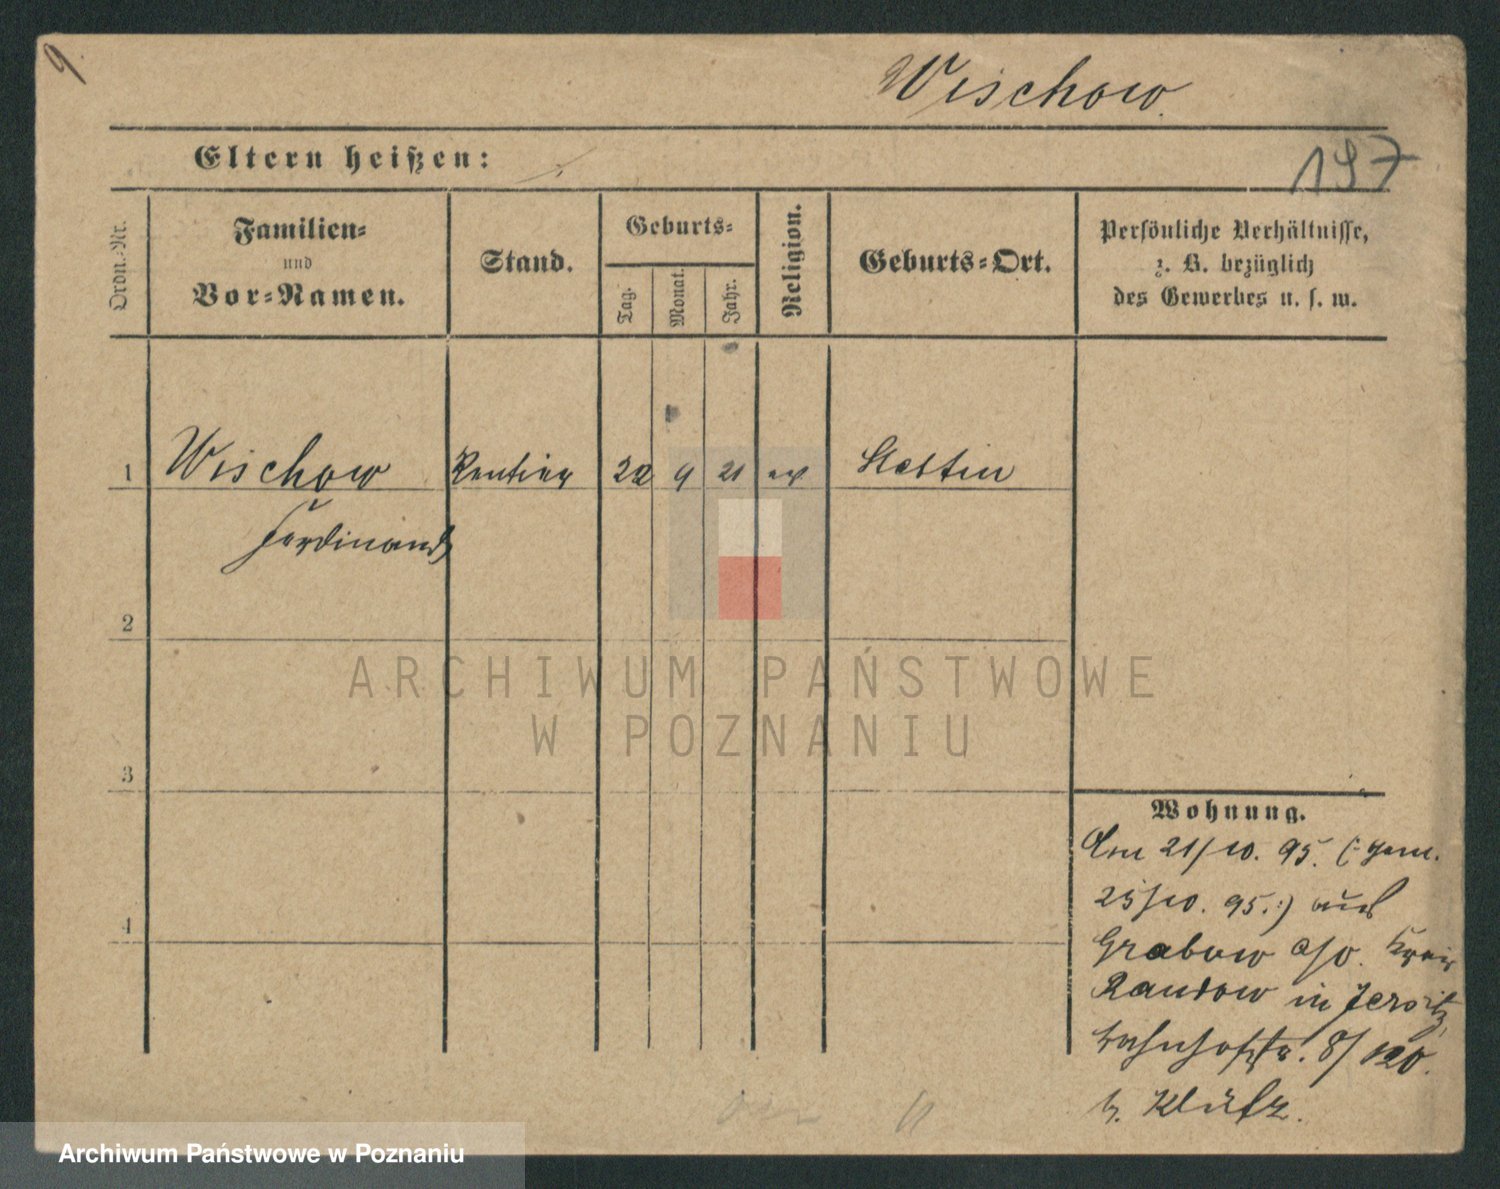 9
Wischow
Eltern heißen:
197
Ordn.-Nr.
Familien-
und
Vor-Namen.
Stand.
Geburts-
Tag.
Monat.
Jahr.
Religion.
Geburts-Ort.
Persönliche Verhältnisse,
z. B. bezüglich
des Gewerbes u. s. w.
1 Wischow Rentier 22 9 21 ev Stettin
Ferdinand
2
3
4
Wohnung.
Am 21/10. 95. (: gem.
25/10. 95. :) aus
Grabow a/o. Kreis
Randow in Jersitz,
Bahnhofstr. 8/120.
b. Klütz.
ARCHIWUM PAŃSTWOWE
W POZNANIU
Archiwum Państwowe w Poznaniu